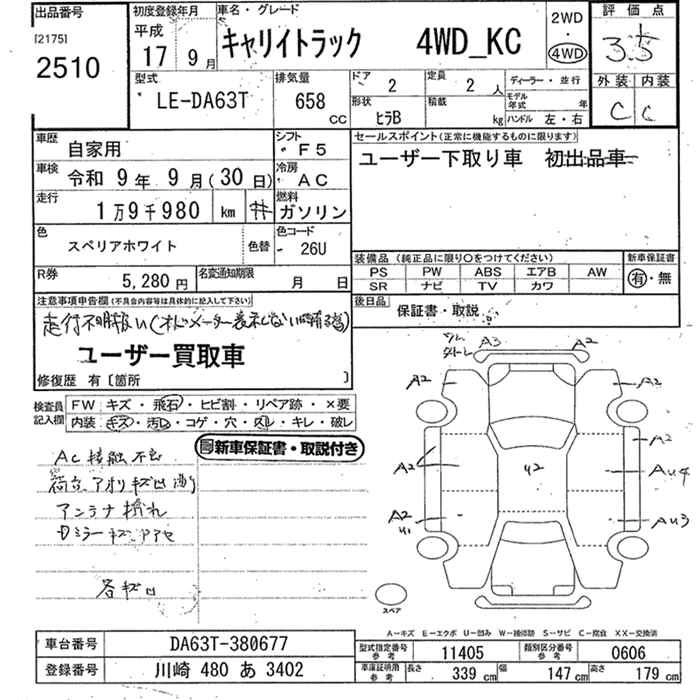 出品番号
[2175]
2510
初度登録年月
平成
17 9月
車名・グレード
キャリイトラック 4WD_KC
2WD
・
4WD
評価点
3.5
外装 内装
C C
型式
LE-DA63T
排気量
658 CC
ドア
2
定員
2 人
形状
ヒラB
積載
kg
ディーラー・並行
モデル年式 年
ハンドル 左・右
車歴
自家用
シフト
F5
車検
令和 9年 9月(30日)
冷房
AC
走行
1万9千980 km
燃料
ガソリン
色
スペリアホワイト
色替
色コード
26U
R券
5,280円
名変通知期限
月 日
セールスポイント(正常に機能するものに限ります)
ユーザー下取り車 初出品車
装備品 (純正品に限り○をつけてください)
PS PW ABS エアB AW
SR ナビ TV カワ
新車保証書
有・無
後日品
保証書・取説
注意事項申告欄(不具合内容等は具体的に記入して下さい)
走行不明扱い(オドメーター表示しない時有る為)
ユーザー買取車
修復歴 有〔箇所 〕
検査員記入欄
FW キズ・飛石・ヒビ割・リペア跡・×要
内装 キズ・汚レ・コゲ・穴・スレ・キレ・破レ
新車保証書・取説付き
AC接触不良
荷台、アオリキズ凹
アンテナ
Dミラーキズ
各キズ凹
A3 A2
A2 A2
A2 A2
42 AU4
A2 AU3
スペア
A-キズ E-エクボ U-凹み W-補修跡 S-サビ C-腐食 XX-交換済
車台番号
DA63T-380677
登録番号
川崎 480 あ 3402
型式指定番号
参考
11405
類別区分番号
参考
0606
車庫証明用
参考
長さ 339 cm 幅 147 cm 高さ 179 cm